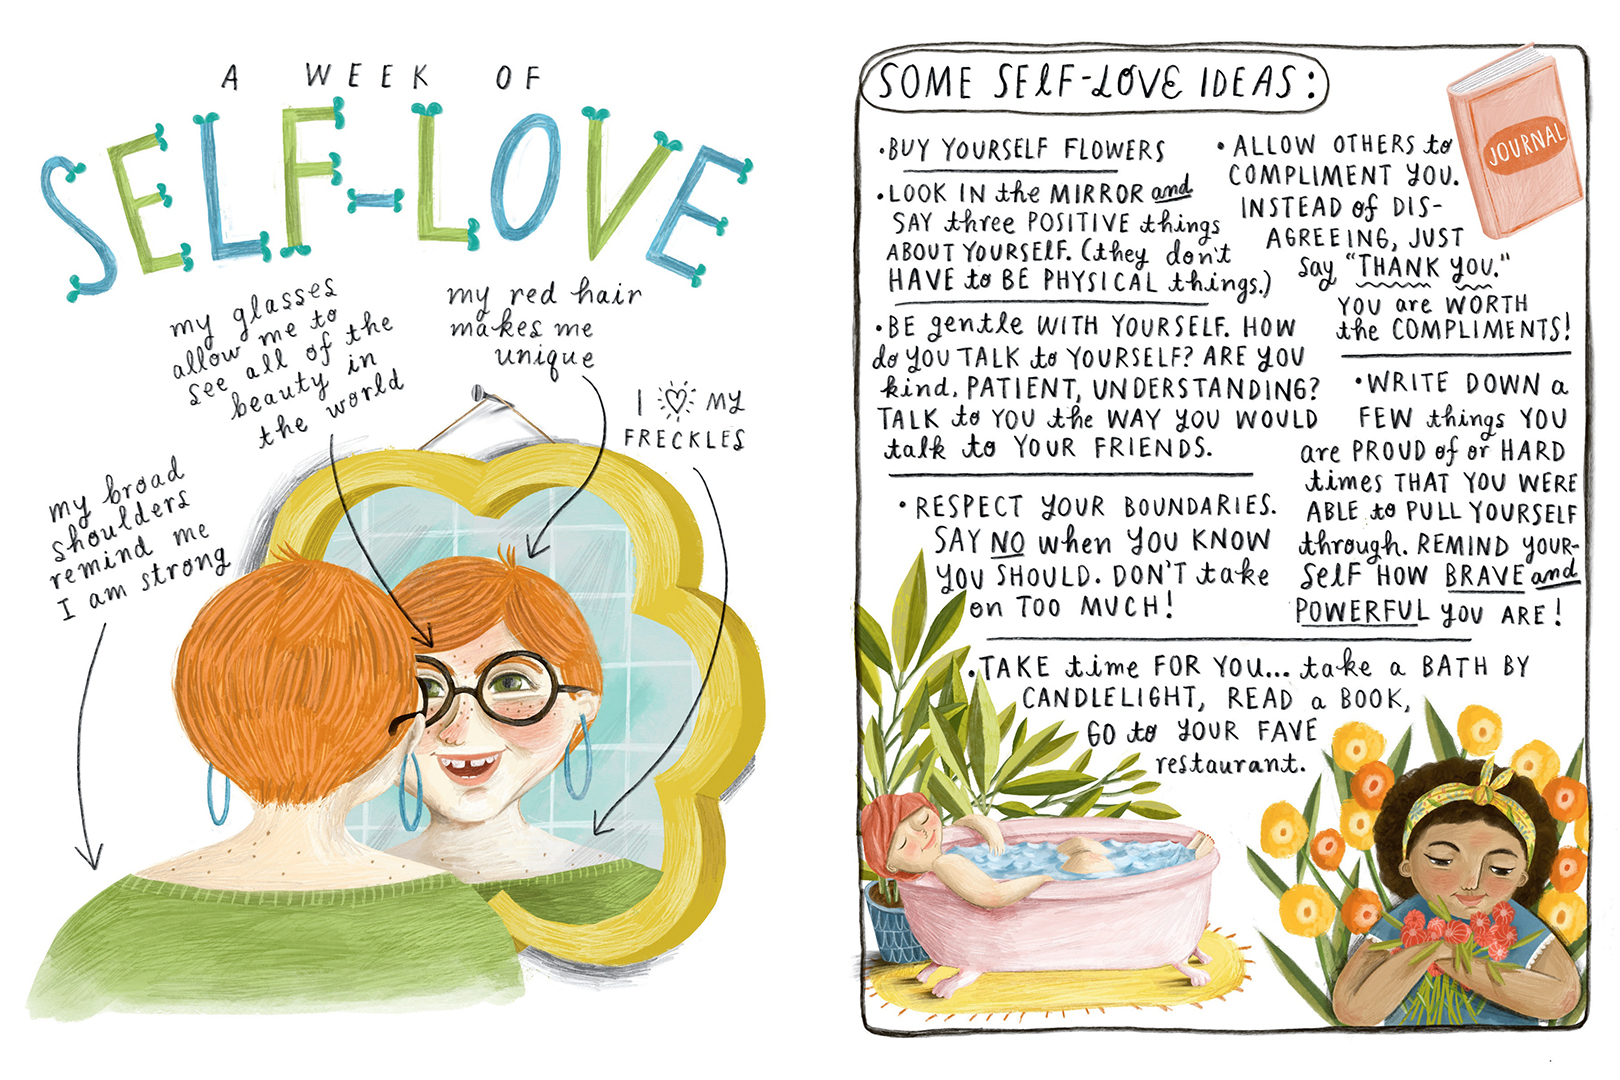 A WEEK OF
SELF-LOVE
my glasses
allow me to
see all of the
beauty in
the world
my red hair
makes me
unique
I MY
FRECKLES
my broad
shoulders
remind me
I am strong
SOME SELF-LOVE IDEAS:
•BUY YOURSELF FLOWERS
•LOOK IN the MIRROR and
SAY three POSITIVE things
ABOUT YOURSELF. (they don't
HAVE to BE PHYSICAL things.)
•BE gentle WITH YOURSELF. HOW
do YOU TALK to YOURSELF? ARE YOU
kind, PATIENT, UNDERSTANDING?
TALK to YOU the WAY YOU WOULD
talk to YOUR FRIENDS.
•RESPECT YOUR BOUNDARIES.
SAY NO when YOU KNOW
YOU SHOULD. DON'T take
on TOO MUCH!
•ALLOW OTHERS to
COMPLIMENT YOU.
INSTEAD of DIS-
AGREEING, JUST
say "THANK YOU."
YOU are WORTH
the COMPLIMENTS!
•WRITE DOWN a
FEW things YOU
are PROUD of or HARD
times THAT YOU WERE
ABLE to PULL YOURSELF
through. REMIND YOUR-
SELF HOW BRAVE and
POWERFUL YOU ARE!
•TAKE time FOR YOU... take a BATH BY
CANDLELIGHT, READ a BOOK,
GO to YOUR FAVE
restaurant.
JOURNAL